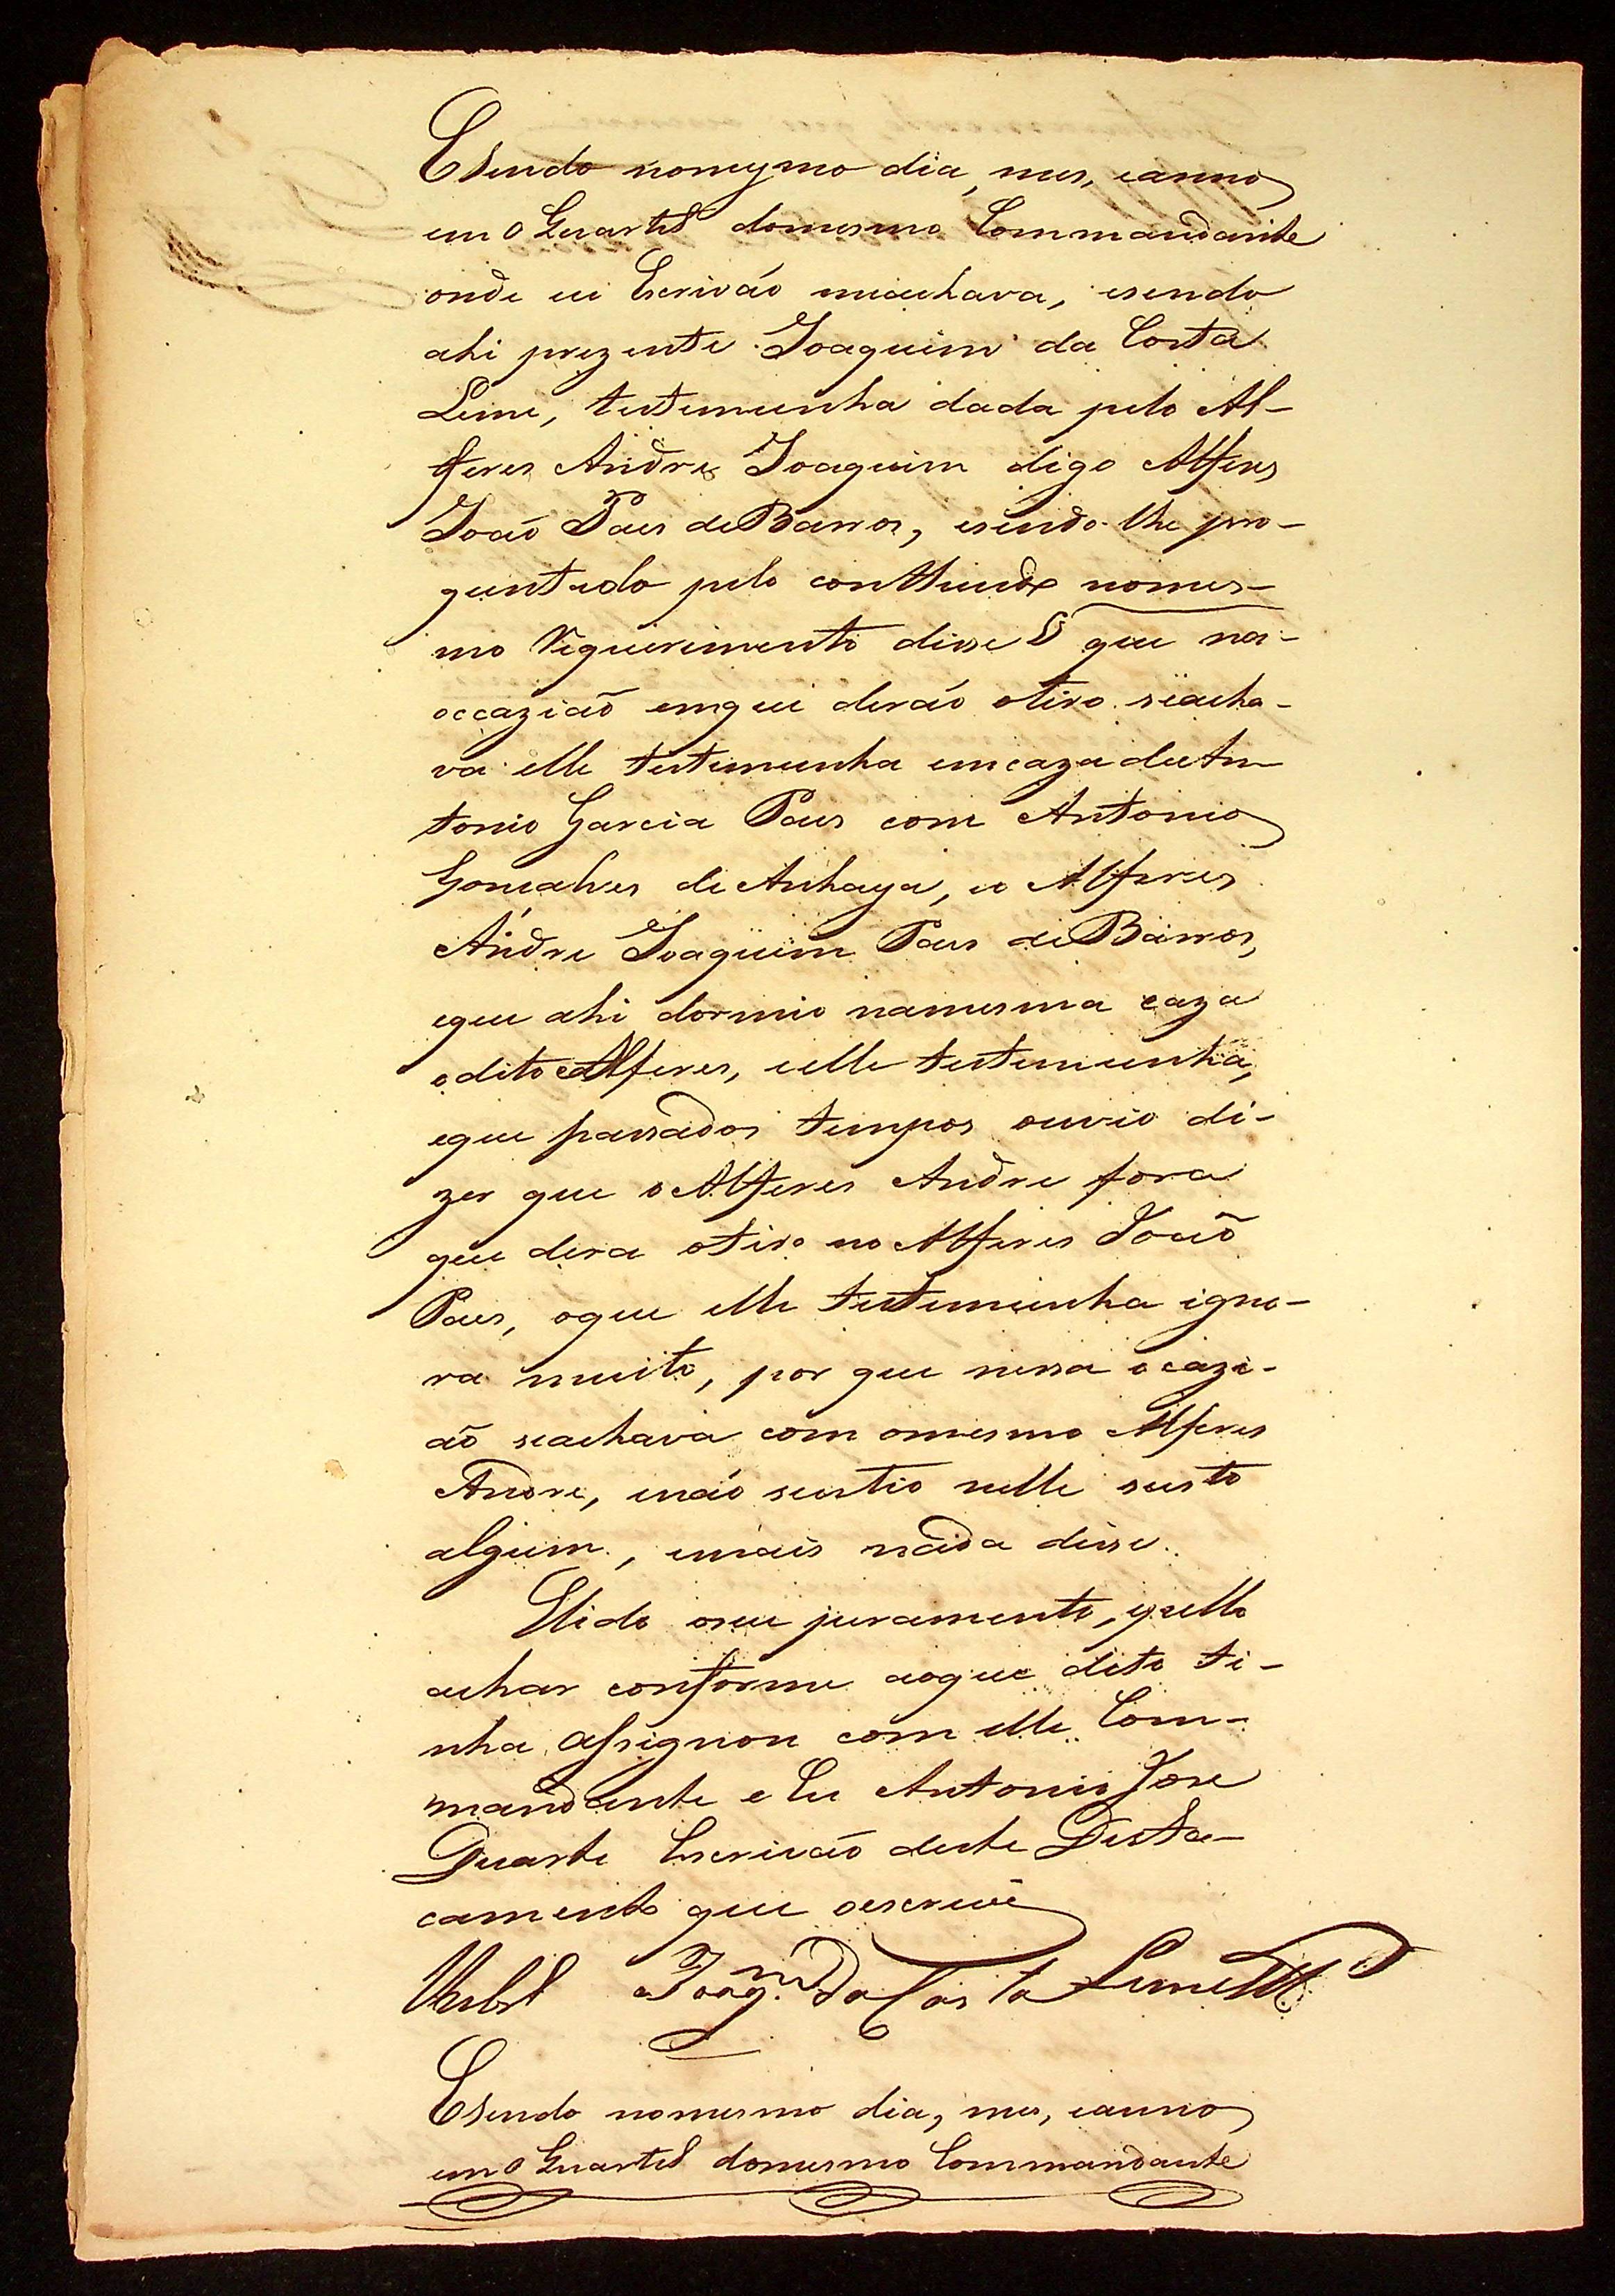 Esendo nomesmo dia, mes, eanno
em o Quartel domesmo Commandante
onde eu Escrivaõ meachava, esendo
ahi prezente Joaquim da Costa
Leme, testemunha dada pelo Al-
feres Andre Joaquim digo Alferes
Joaõ Paes de Barros, esendo-lhe pro-
guntado pelo contheudo nomes-
mo Requerimento disse que na
occaziaõ emque deraõ otiro seacha-
va elle testemunha emcaza de An-
tonio Garcia Paes com Antonio
Gonçalves de Anhaya, eo Alferes
Andre Joaquim Paes de Barros,
eque ahi dormio namesma caza
odito Alferes, eelle testemunha,
eque passados tempos ouvio di-
zer que o Alferes Andre fora
que dera otiro no Alferes Joaõ
Paes, oque elle testemunha igno-
ra muito, por que nessa ocazi-
aõ seachava com omesmo Alferes
Andre, enaõ sentio nelle susto
algum, emais nada disse.
Elido oseu juramento, epello
achar conforme aoque dito ti-
nha assignou com elle Com-
mandante e Eu Antonio Jose
Duarte Escrivaõ deste Desta-
camento que oescrevi
Joaq.m da Costa Leme
Esendo nomesmo dia, mes, eanno
em o Quartel domesmo Commandante